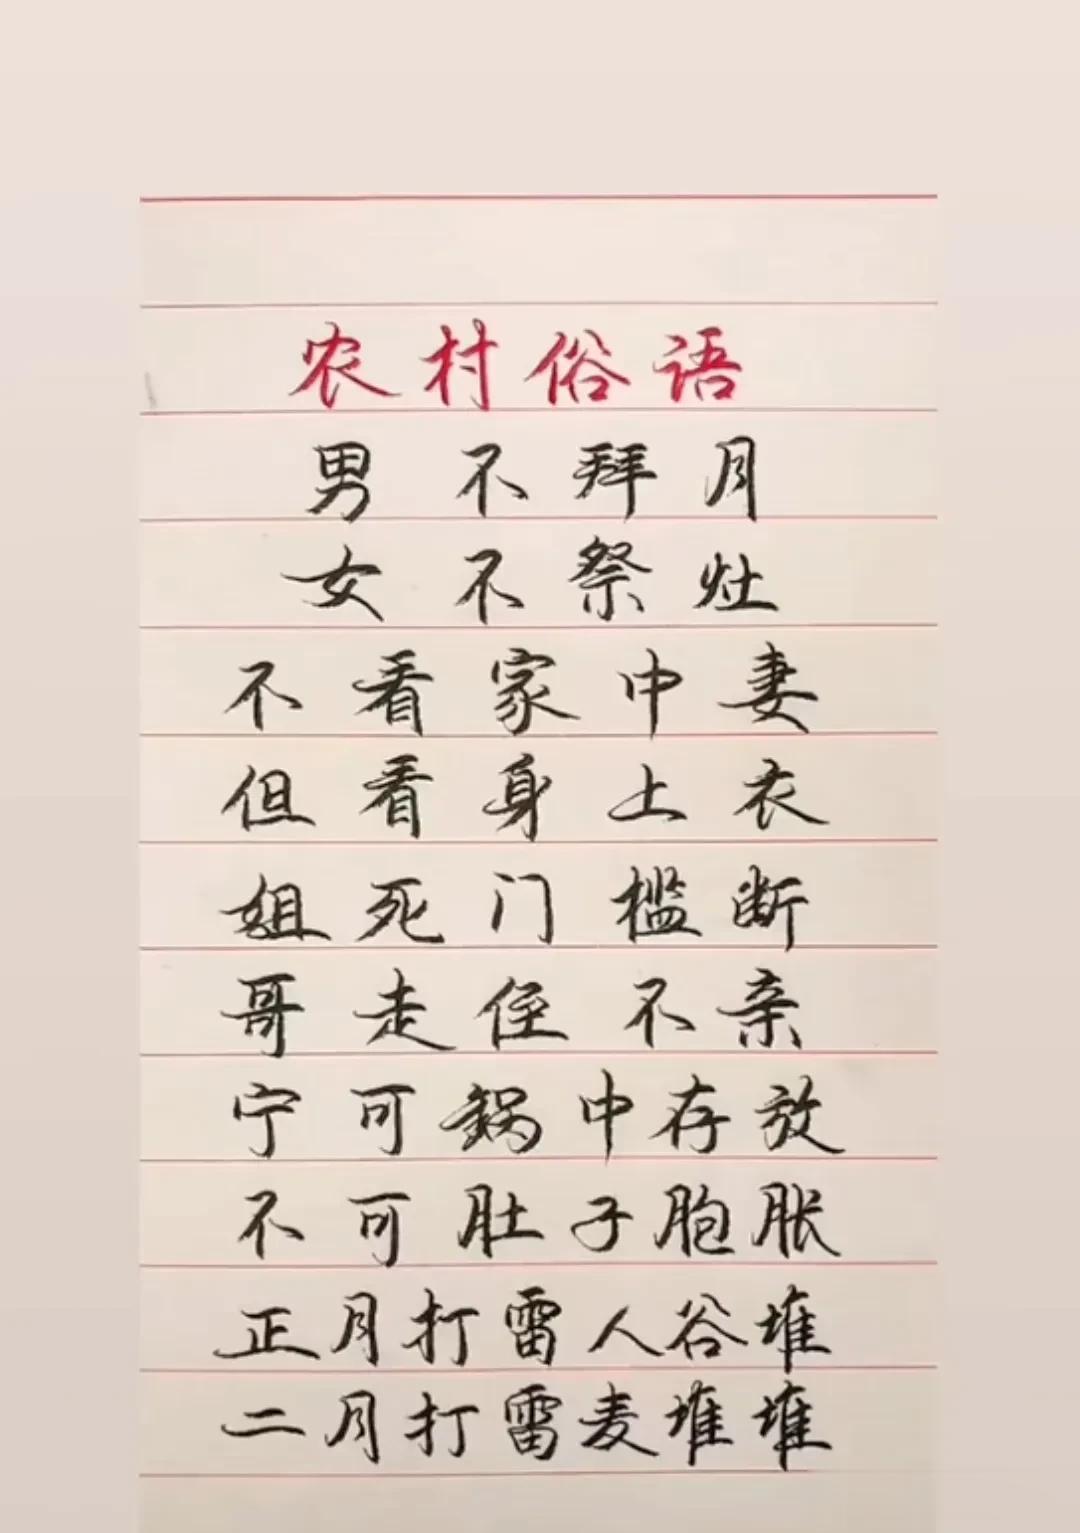 农村俗语
男不拜月
女不祭灶
不看家中妻
但看身上衣
姐死门槛断
哥走侄不亲
宁可锅中存放
不可肚子胞胀
正月打雷人谷堆
二月打雷麦堆堆